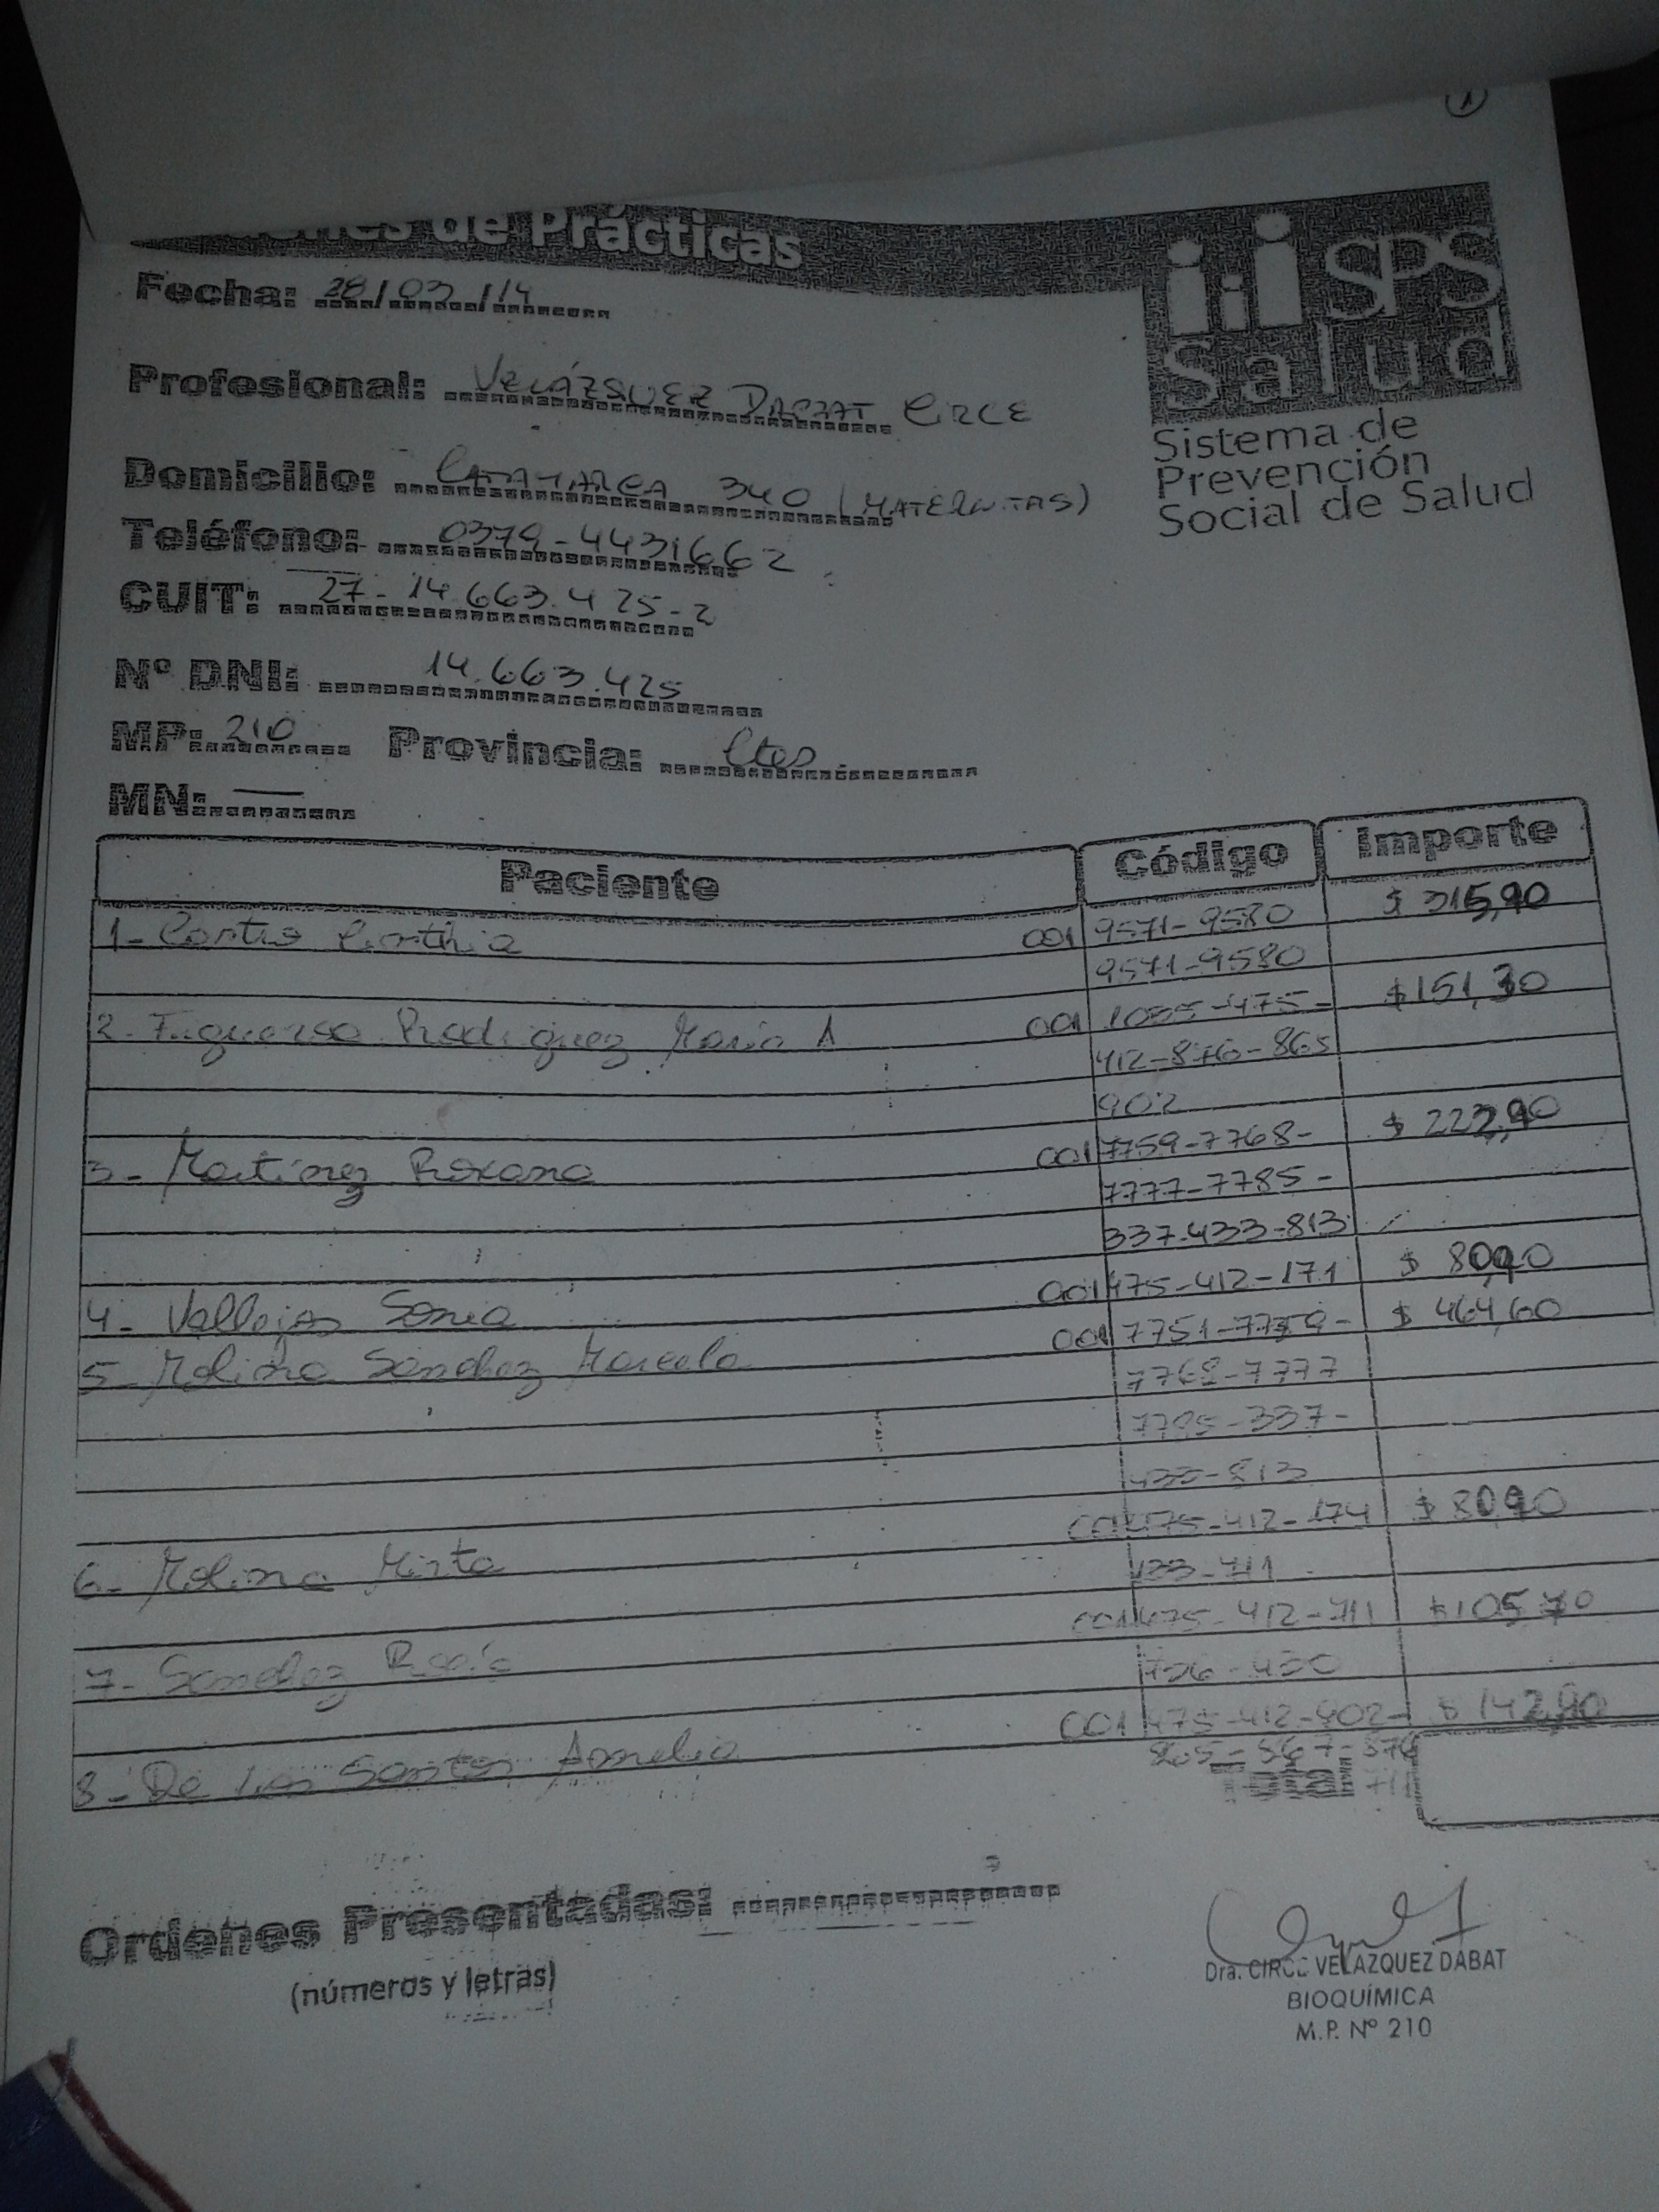 1
de Prácticas
Fecha: 28/03/14
i-i SPS
Salud
Sistema de
Prevención
Social de Salud
Profesional: VELÁZQUEZ DABAT CIRCE
Domicilio: CATAMARCA 340 (MATERNITAS)
Teléfono: 0379-4431662
CUIT: 27-14.663.425-2
Nº DNI: 14.663.425
MP: 210 Provincia: Ctes
MN: —
Paciente Código Importe
1- Cinthia 001 9571-9580 $ 315,90
9571-9580
2- Rodriguez Maria A 001 1035-475- $151,30
412-876-865
902
3- Martinez Roxana 001 7759-7768- $ 222,90
7777-7785-
337-433-813
4- Vallejos Sonia 001 475-412-171 $ 80,90
5- Molina Sanchez Marcela 001 7751-7759- $ 464,60
7768-7777
7785-337-
433-813
6- Molina Mirta 001 475-412-174 $ 80,90
133-711
7- Sanchez Rocío 001 475-412-711 $105,70
8- De los Santos Amelia 001 475-412-902- $ 142,90
865-867-876
Total: 711
Ordenes Presentadas:
(números y letras)
Dra. CIRCE VELAZQUEZ DABAT
BIOQUÍMICA
M.P. Nº 210